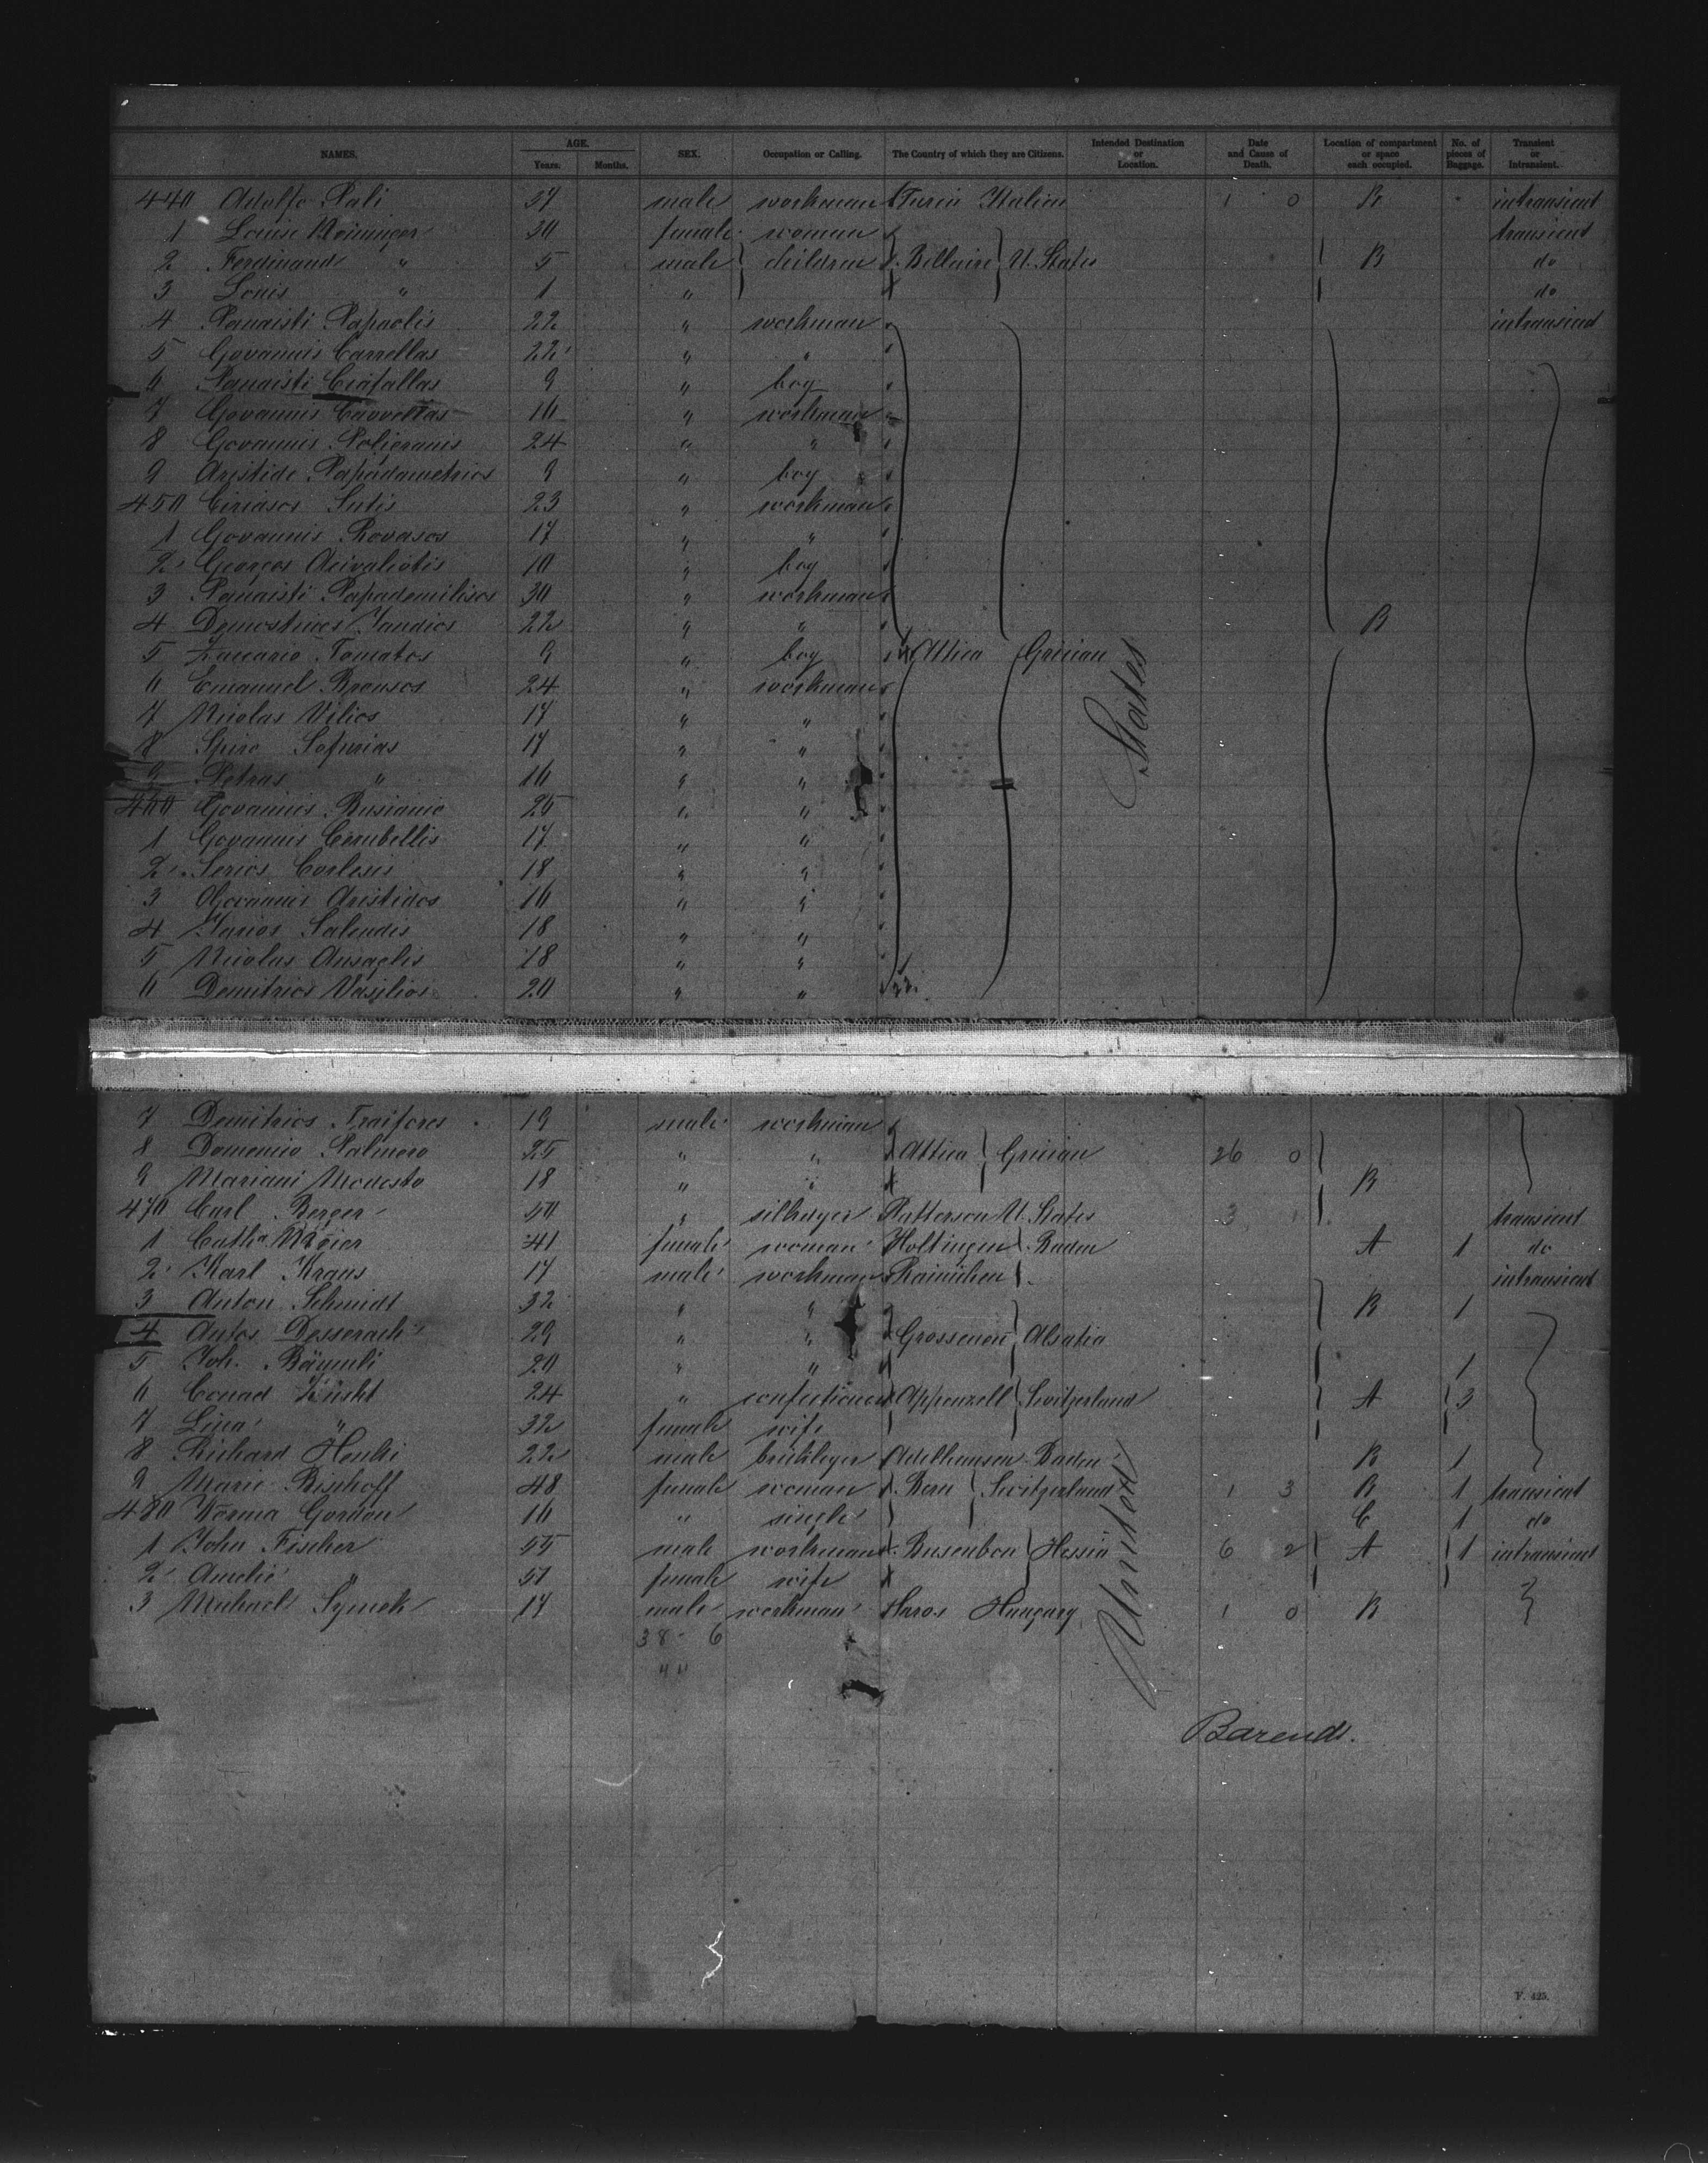 NAMES. AGE. Years. Months. SEX. Occupation or Calling. The Country of which they are Citizens. Intended Destination or Location. Date and Cause of Death. Location of compartment or space each occupied. No. of pieces of Baggage. Transient or Intransient.
440 Adolfo Pali 37 male workman Turin Italian 1 0 B intransient
1 Louise 30 female woman transient
2 Ferdinand " 5 male children Bellaire U. States B do
3 Louis " 1 " do
4 Panaisti Papaolis 22 " workman intransient
5 Govannis Carrellas 22 " "
6 Panaisti Ciafallas 9 " boy
7 Govannis 16 " workman
8 Govannis Poligranis 24 " "
9 Aristide Papadametrios 9 " boy
450 Ciriasos Sutis 23 " workman
1 Govannis Rovasos 17 " "
2 Georgos Acivaliotis 10 " boy
3 Panaisti 30 " workman
4 22 " " B
5 Tomatos 9 " boy Attica Grician
6 Emanuel Brousos 24 " workman
7 Nicolas Vilios 17 " "
8 Spiro Sofurias 17 " "
9 Petras " 16 " "
460 Govannis Busianio 25 " "
1 Govannis Cerubellis 17 " "
2 Serios Corlesis 18 " "
3 Govannis Aristidos 16 " "
4 Salendis 18 " "
5 Nicolas Ausaglis 18 " "
6 Demitrios Vasilios 20 " "
States
7 Demitrios Traifores 19 male workman
8 Domenico Palmero 25 " " Attica Grician 26 0
9 Mariani Modesto 18 " " B
470 Carl Berger 50 " Patterson U. States 3 transient
1 Catha 41 female woman Holtingen Baden A 1 do
2 Karl Kraus 17 male workman intransient
3 Anton Schmidt 32 " " B 1
4 29 " " Alsatia
5 Joh. Bäumli 20 " " 1
6 24 " Appenzell Switzerland A 3
7 Lina " 32 female wife
8 Richard Henki 22 male Adelhausen Baden B 1
9 Marie Bischoff 48 female woman Bern Switzerland 1 3 B 1 transient
480 Norma Gordon 16 " single C 1 do
1 John Fischer 55 male workman Hessia 6 2 A 1 intransient
2 Amelie " 51 female wife
3 17 male workman Saros Hungary 1 0 B
38 - 6
44
United
Barends.
F. 425.